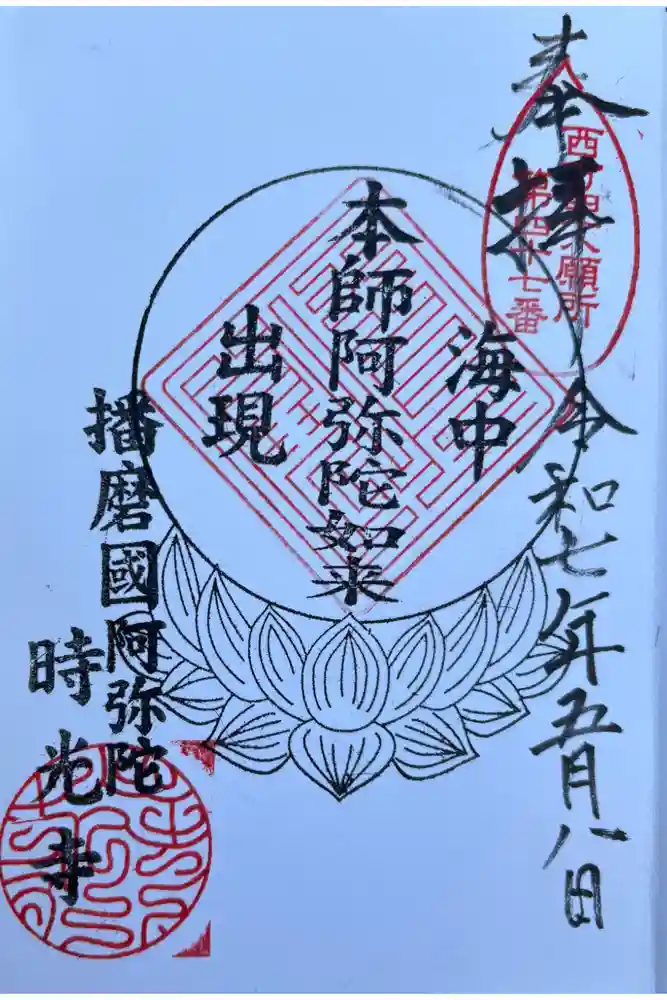 奉拝
西
大願所
第四十七番
令和七年五月八日
海中
本師阿弥陀如来
出現
播磨國阿弥陀
時光寺